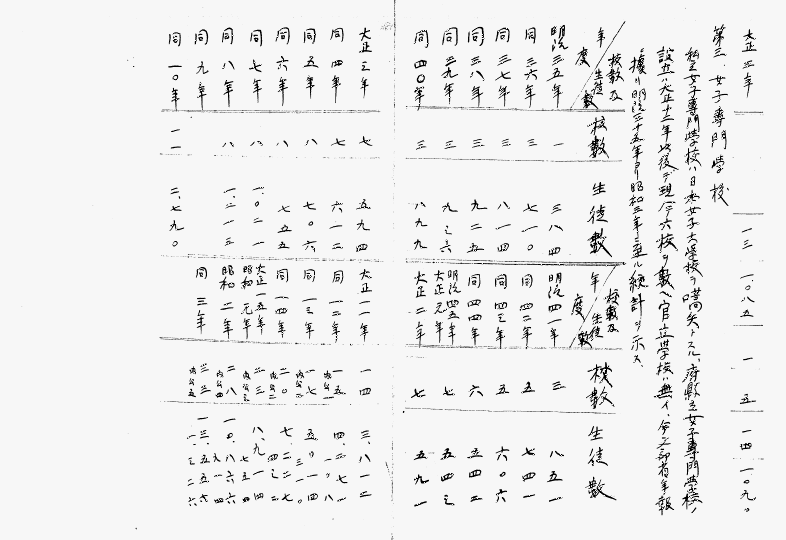 大正三年 一三 一〇八五 一 五 一四 一〇九〇
第三、女子専門学校
私立女子専門学校ハ日本女子大学校ヲ嚆矢トスル、府県立女子専門学校ノ
設立ハ大正十一年以後デ現ニ六校ヲ数ヘ官立学校ハ無イ、今文部省年報
ニ據リ明治三十五年ヨリ昭和三年ニ至ル統計ヲ示ス、
年度 校数及生徒数 校数 生徒数
明治三五年 一 三八四
同 三六年 三 七一〇
同 三七年 三 八一四
同 三八年 三 九二五
同 三九年 三
同 四〇年 三 八九九
年度 校数及生徒数 校数 生徒数
明治四一年 三 八五一
同 四二年 五 七四一
同 四三年 五 六〇六
同 四四年 六 五四二
明治四五年 大正元年 七
大正二年 七 五九一
大正三年 七 五九四
同 四年 七 六一二
同 五年 八 七〇六
同 六年 八 七五五
同 七年 八 一、〇二一
同 八年 八 一、二一三
同 九年
同 一〇年 一一 二、七九〇
大正一一年 一四 三、八一二
同 一二年 一五
同 一三年 一七
同 一四年 二〇 七、二二七
大正一五年 昭和元年 二三 八、九一四
昭和二年 二八 一〇、八六六
同 三年 三三 一三、五五六